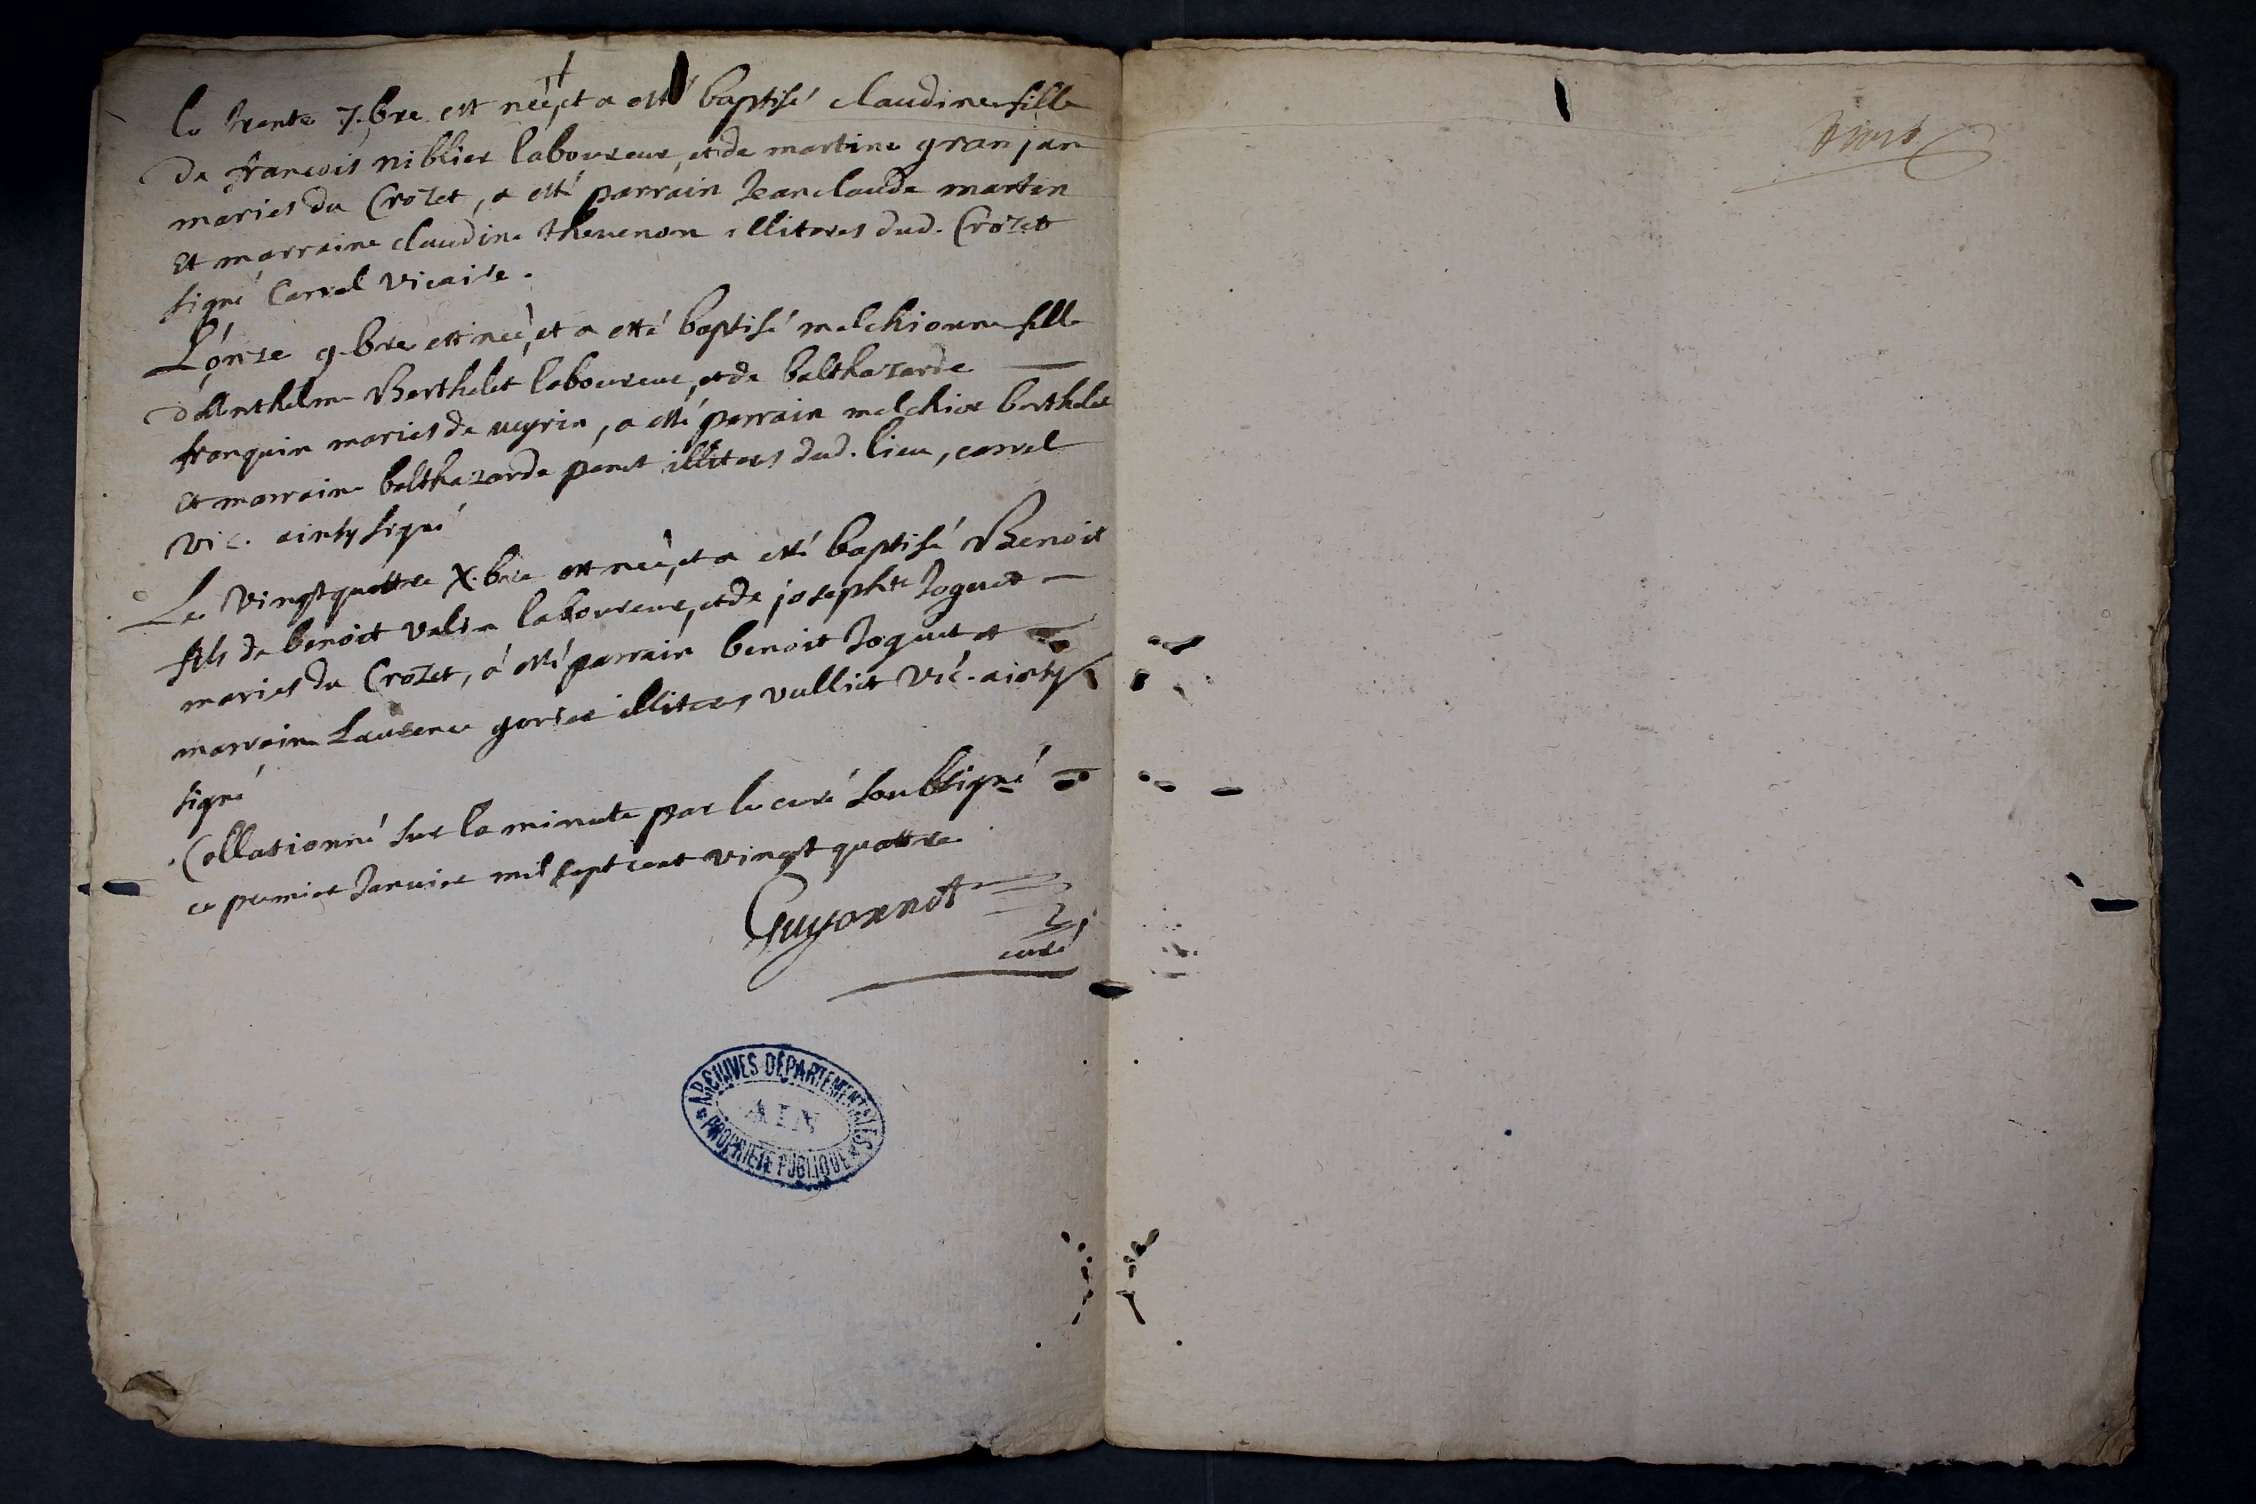 le trente 7.bre est née, et a esté baptisé claudine fille
de francois niblier laboureur, et de martine granjan
mariés du Crozet, a esté parrain Jean claude martin
Et marraine claudine thevenon illiteres dud. Crozet
signé Carrel vicaire.
L'onze 9.bre est née, et a esté baptisé melchionne fille
d'Anthelme Berthelet laboureur, et de balthazarde
franquin mariés de veyrin, a esté parrain melchior berthelet
Et marraine balthazarde penet illiteres dud. lieu, carrel
vic. ainsy signé
Le vingt quattre X.bre est née, et a esté baptisé Benoit
fils de benoit laboureur, et de josephte Joguet
mariés du Crozet, a esté parrain benoit Joguet et
marraine Laurence illiteres, vulliet vic. ainsy
signé
Collationné sur la minute par le curé soubsigné
ce premier Janvier mil sept cent vingt quattre
Guyonnet
curé
ARCHIVES DÉPARTEMENTALES
AIN
PROPRIÉTÉ PUBLIQUE